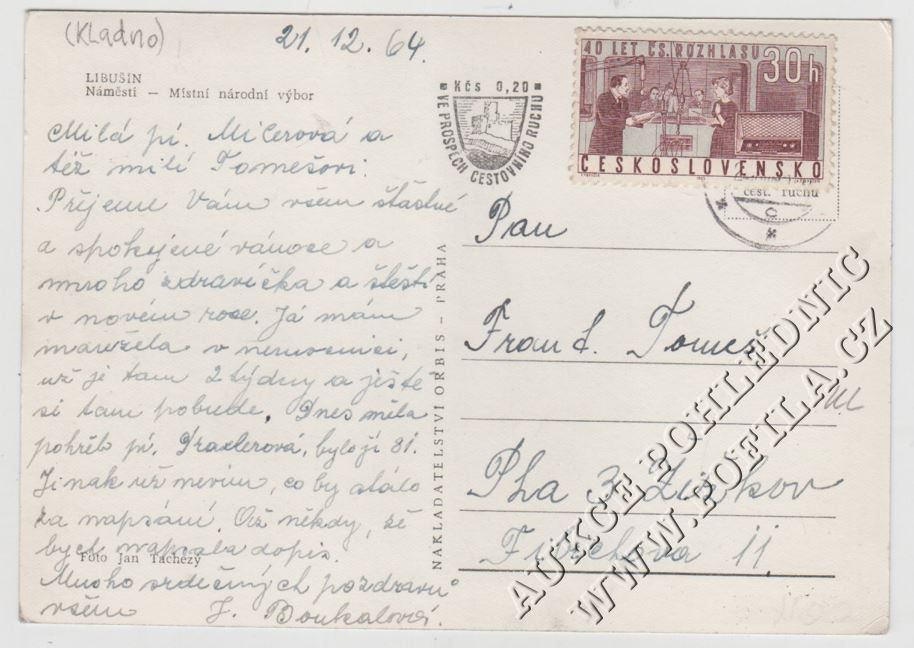 (Kladno)
21. 12. 64
LIBUŠÍN
Náměstí – Místní národní výbor
Milá pí. Milerová a
též milí Tomešovi.
Přejeme Vám všem šťastné
a spokojené vánoce a
mnoho zdravíčka a štěstí
v novém roce. Já mám
manžela v nemocnici,
už je tam 2 týdny a ještě
si tam pobude. Dnes měla
pohřeb pí. bylo jí 81.
Jinak už nevím, co by stálo
za napsání. Až někdy, že
bych napsala dopis.
Foto Jan Tachezy
Mnoho srdečných pozdravů
všem J. Boukalová.
NAKLADATELSTVÍ ORBIS - PRAHA
Kčs 0,20
VE PROSPĚCH CESTOVNÍHO RUCHU
40 LET ČS. ROZHLASU
30 h
ČESKOSLOVENSKO
cest. ruchu
Pan
Frant. Tomeš
Pha 3. Žižkov
11
AUKCE POHLEDNIC
WWW.POFILA.CZ